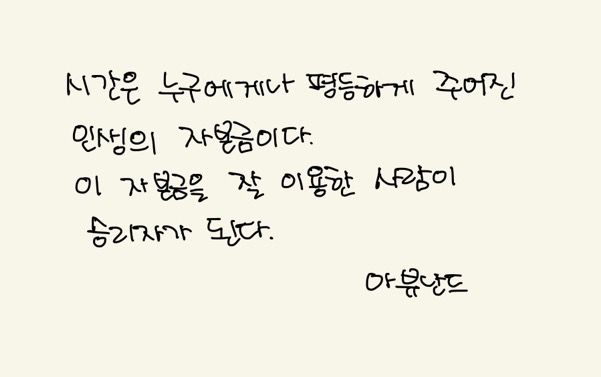 시간은 누구에게나 평등하게 주어진
인생의 자본금이다.
이 자본금을 잘 이용한 사람이
승리자가 된다.
아뷰난드